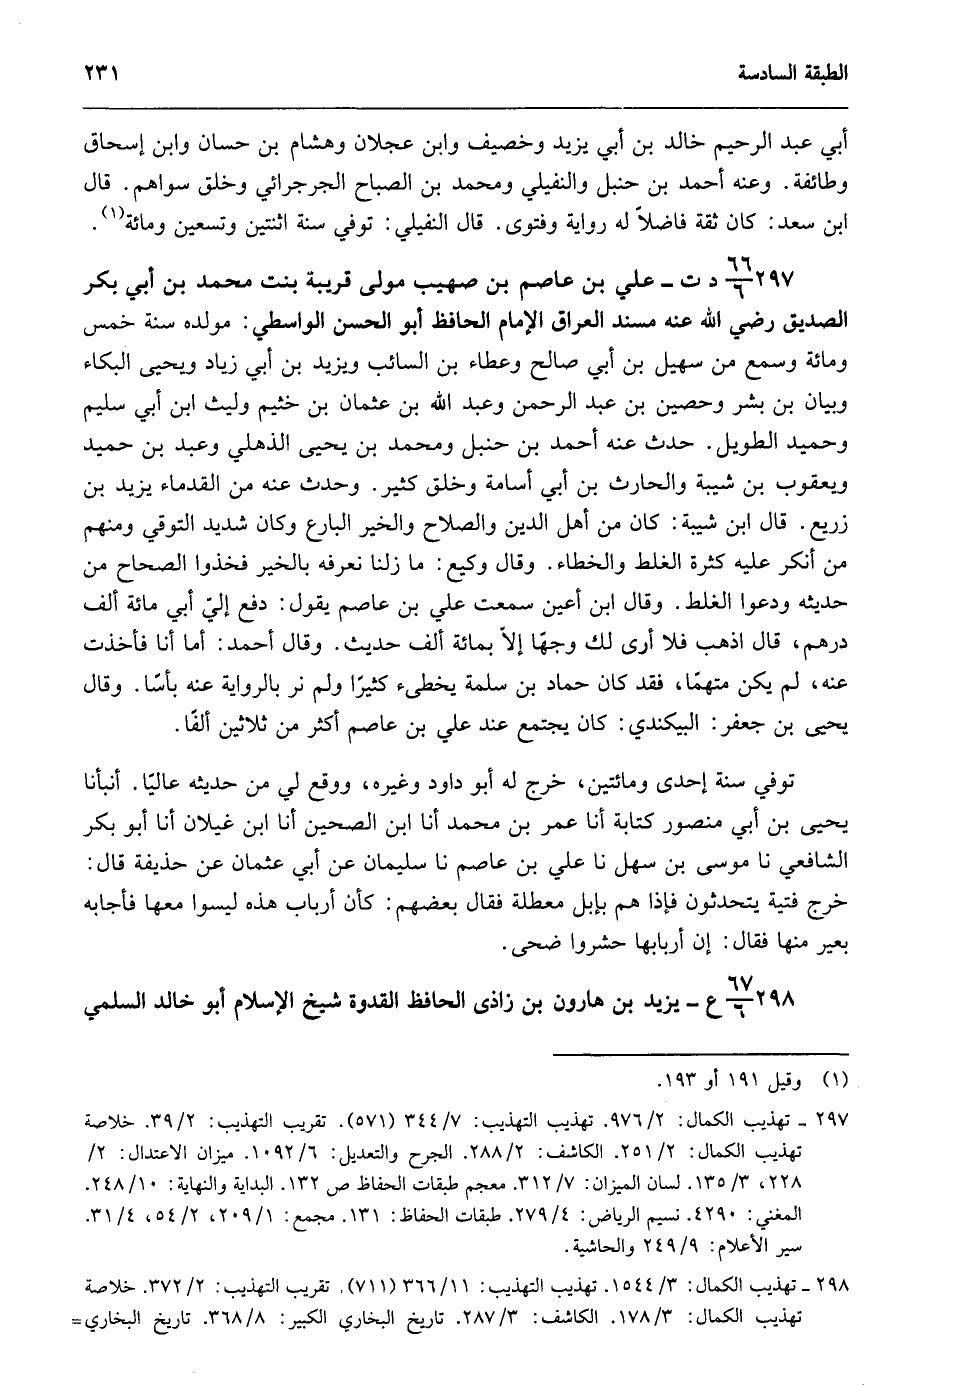 الطبقة السادسة ٢٣١
أبي عبد الرحيم خالد بن أبي يزيد وخصيف وابن عجلان وهشام بن حسان وابن إسحاق
وطائفة. وعنه أحمد بن حنبل والنفيلي ومحمد بن الصباح الجرجرائي وخلق سواهم. قال
ابن سعد: كان ثقة فاضلاً له رواية وفتوى. قال النفيلي: توفي سنة اثنتين وتسعين ومائة(١).
٢٩٧ ٦٦/٦ د ت ـ علي بن عاصم بن صهيب مولى قريبة بنت محمد بن أبي بكر
الصديق رضي الله عنه مسند العراق الإمام الحافظ أبو الحسن الواسطي: مولده سنة خمس
ومائة وسمع من سهيل بن أبي صالح وعطاء بن السائب ويزيد بن أبي زياد ويحيى البكاء
وبيان بن بشر وحصين بن عبد الرحمن وعبد الله بن عثمان بن خثيم وليث ابن أبي سليم
وحميد الطويل. حدث عنه أحمد بن حنبل ومحمد بن يحيى الذهلي وعبد بن حميد
ويعقوب بن شيبة والحارث بن أبي أسامة وخلق كثير. وحدث عنه من القدماء يزيد بن
زريع. قال ابن شيبة: كان من أهل الدين والصلاح والخير البارع وكان شديد التوقي ومنهم
من أنكر عليه كثرة الغلط والخطاء. وقال وكيع: ما زلنا نعرفه بالخير فخذوا الصحاح من
حديثه ودعوا الغلط. وقال ابن أعين سمعت علي بن عاصم يقول: دفع إليّ أبي مائة ألف
درهم، قال اذهب فلا أرى لك وجهًا إلاّ بمائة ألف حديث. وقال أحمد: أما أنا فأخذت
عنه، لم يكن متهمًا، فقد كان حماد بن سلمة يخطىء كثيرًا ولم نر بالرواية عنه بأسًا. وقال
يحيى بن جعفر: البيكندي: كان يجتمع عند علي بن عاصم أكثر من ثلاثين ألفًا.
توفي سنة إحدى ومائتين، خرج له أبو داود وغيره، ووقع لي من حديثه عاليًا. أنبأنا
يحيى بن أبي منصور كتابة أنا عمر بن محمد أنا ابن الصحين أنا ابن غيلان أنا أبو بكر
الشافعي نا موسى بن سهل نا علي بن عاصم نا سليمان عن أبي عثمان عن حذيفة قال:
خرج فتية يتحدثون فإذا هم بإبل معطلة فقال بعضهم: كأن أرباب هذه ليسوا معها فأجابه
بعير منها فقال: إن أربابها حشروا ضحى.
٢٩٨ ٦٧/٦ ع ـ يزيد بن هارون بن زاذى الحافظ القدوة شيخ الإسلام أبو خالد السلمي
(١) وقيل ١٩١ أو ١٩٣.
٢٩٧ ـ تهذيب الكمال: ٩٧٦/٢. تهذيب التهذيب: ٣٤٤/٧ (٥٧١). تقريب التهذيب: ٣٩/٢. خلاصة
تهذيب الكمال: ٢٥١/٢. الكاشف: ٢٨٨/٢. الجرح والتعديل: ١٠٩٢/٦. ميزان الاعتدال: ٢/
٢٢٨، ١٣٥/٣. لسان الميزان: ٣١٢/٧. معجم طبقات الحفاظ ص ١٣٢. البداية والنهاية: ٢٤٨/١٠.
المغني: ٤٢٩٠. نسيم الرياض: ٢٧٩/٤. طبقات الحفاظ: ١٣١. مجمع: ٢٠٩/١، ٥٤/٢، ٣١/٤.
سير الأعلام: ٢٤٩/٩ والحاشية.
٢٩٨ ـ تهذيب الكمال: ١٥٤٤/٣. تهذيب التهذيب: ٣٦٦/١١ (٧١١). تقريب التهذيب: ٣٧٢/٢. خلاصة
تهذيب الكمال: ١٧٨/٣. الكاشف: ٢٨٧/٣. تاريخ البخاري الكبير: ٣٦٨/٨. تاريخ البخاري=